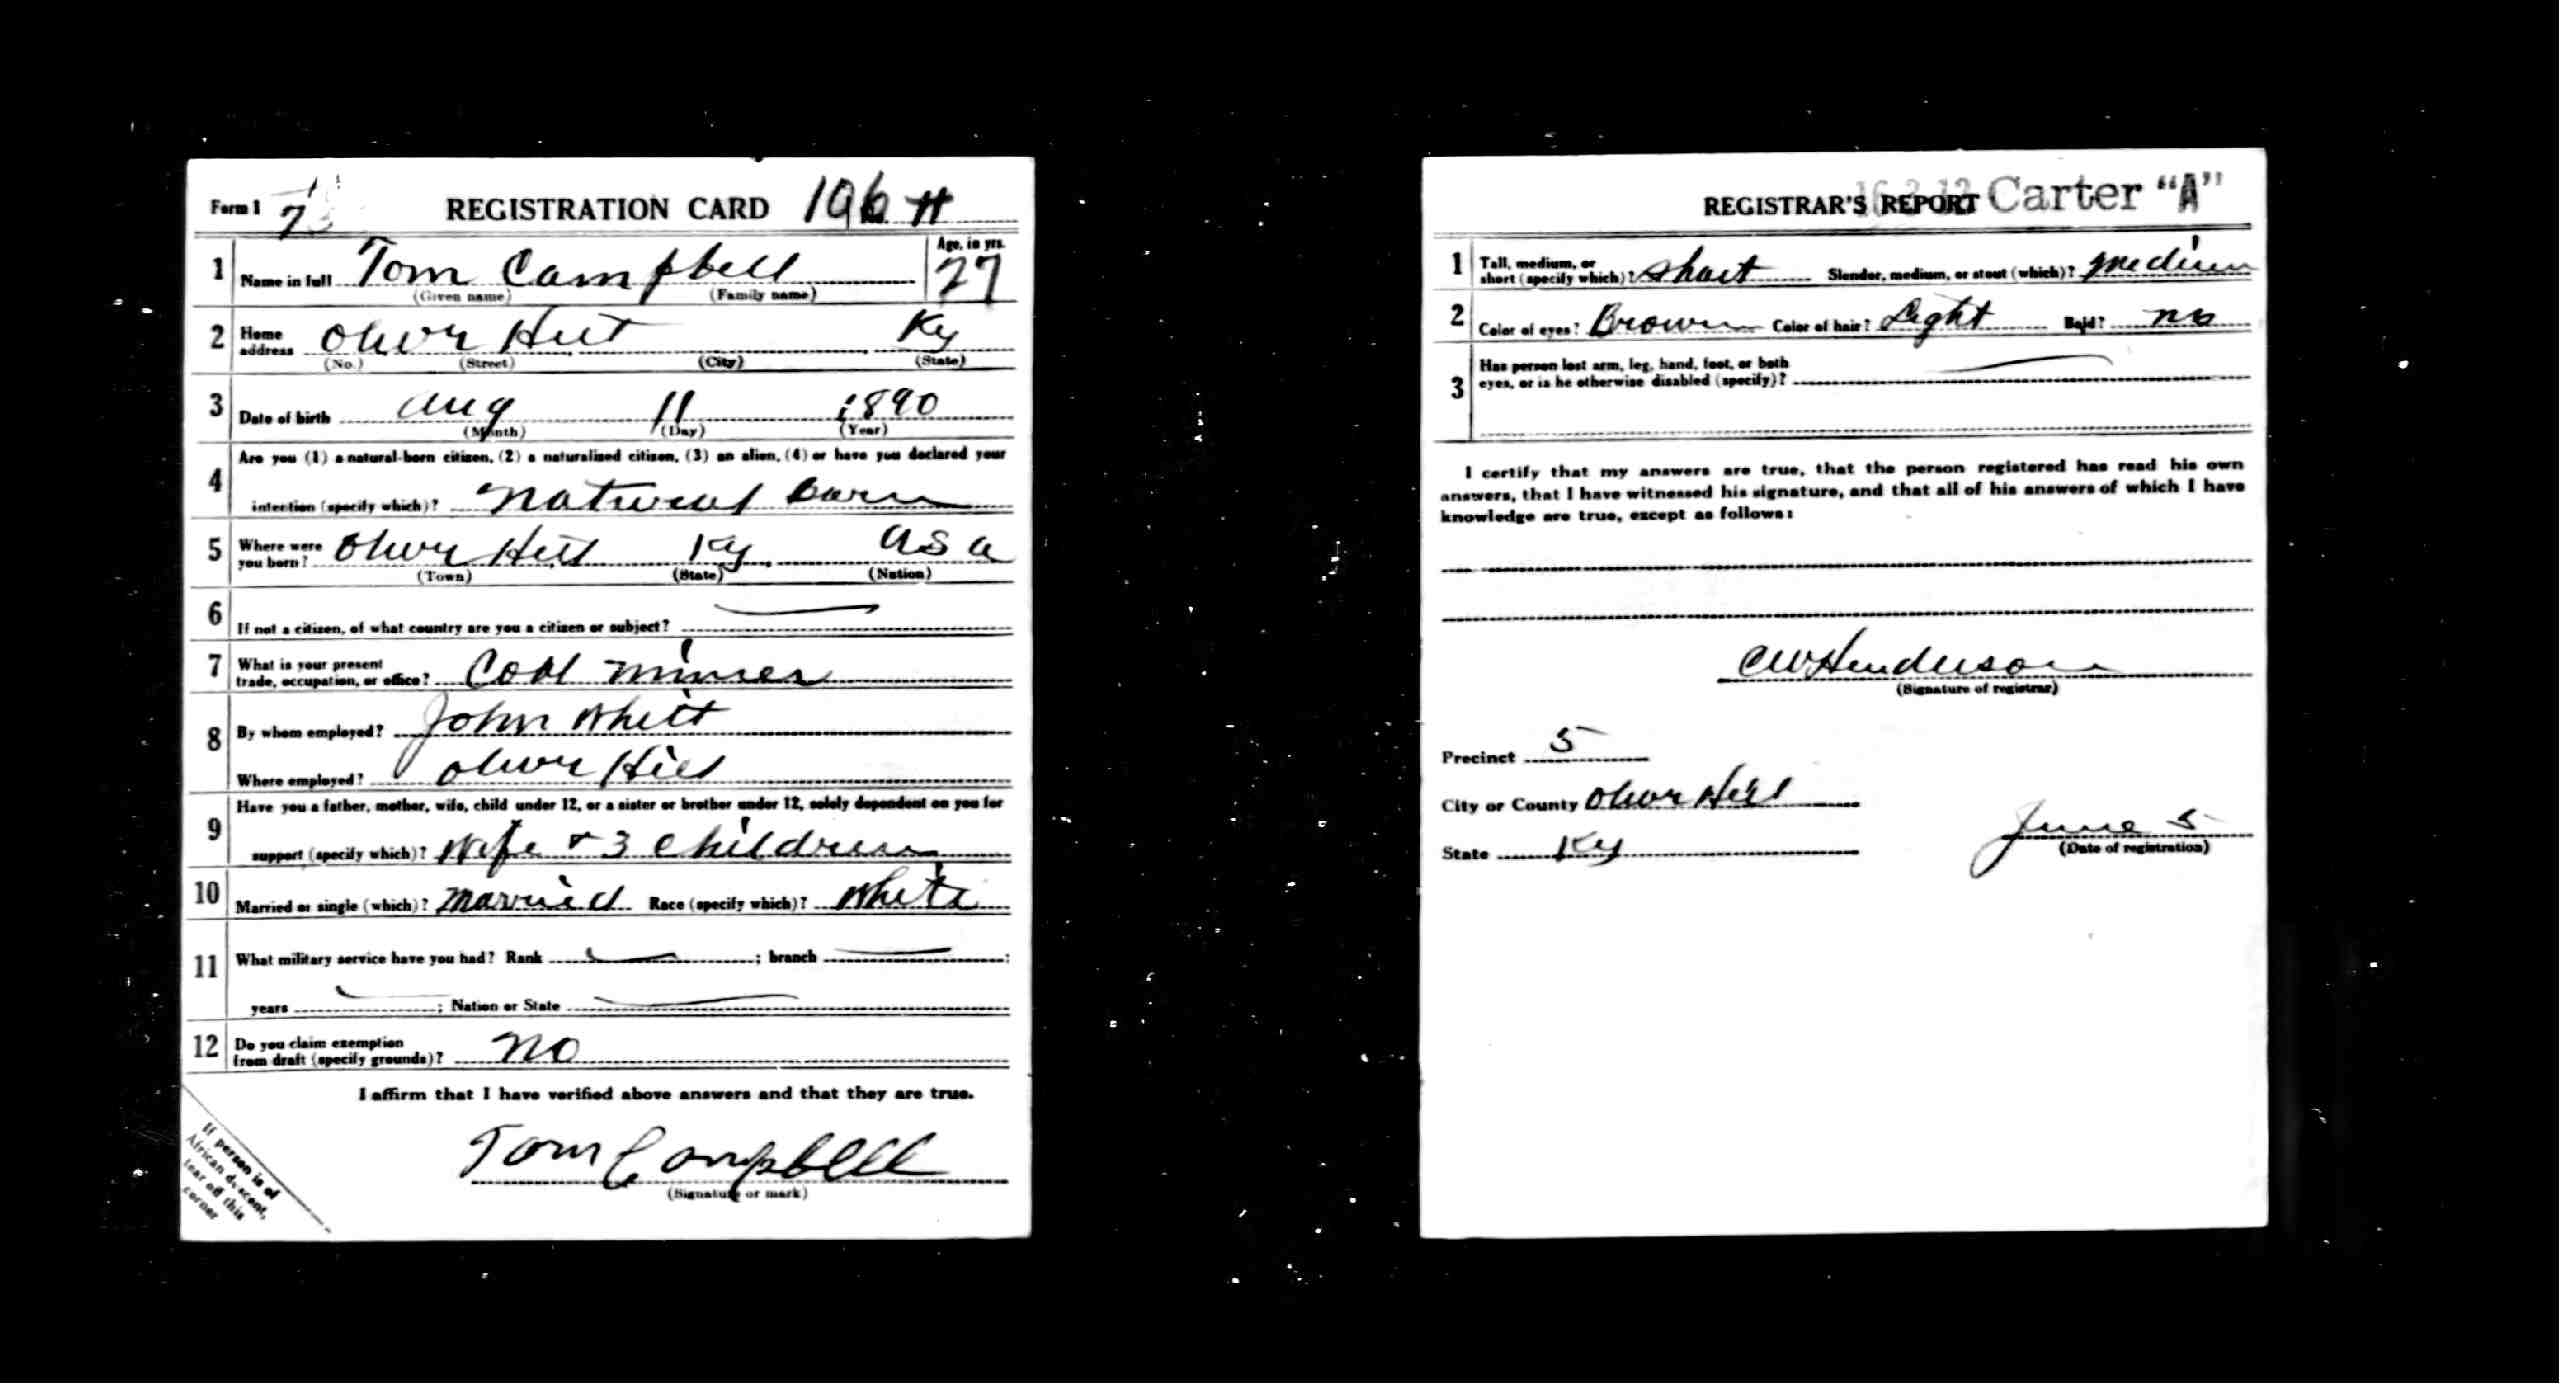 Form 1 7 REGISTRATION CARD 196 H
1 Name in full Tom Campbell Age, in yrs. 27
(Given name) (Family name)
2 Home address Olive Hill Ky
(No.) (Street) (City) (State)
3 Date of birth Aug 11 1890
(Month) (Day) (Year)
4 Are you (1) a natural-born citizen, (2) a naturalized citizen, (3) an alien, (4) or have you declared your
intention (specify which)? Natural born
5 Where were you born? Olive Hill Ky USA
(Town) (State) (Nation)
6 If not a citizen, of what country are you a citizen or subject?
7 What is your present
trade, occupation, or office? Coal miner
8 By whom employed? John Whitt
Where employed? Olive Hill
9 Have you a father, mother, wife, child under 12, or a sister or brother under 12, solely dependent on you for
support (specify which)? Wife + 3 children
10 Married or single (which)? Married Race (specify which)? White
11 What military service have you had? Rank ; branch ;
years ; Nation or State
12 Do you claim exemption
from draft (specify grounds)? No
I affirm that I have verified above answers and that they are true.
Tom Campbell
(Signature or mark)
If person is of
African descent,
tear off this
corner
REGISTRAR'S REPORT Carter "A"
1 Tall, medium, or
short (specify which)? Short Slender, medium, or stout (which)? Medium
2 Color of eyes? Brown Color of hair? Light Bald? no
3 Has person lost arm, leg, hand, foot, or both
eyes, or is he otherwise disabled (specify)?
I certify that my answers are true, that the person registered has read his own
answers, that I have witnessed his signature, and that all of his answers of which I have
knowledge are true, except as follows:
CW Henderson
(Signature of registrar)
Precinct 5
City or County Olive Hill
State Ky June 5
(Date of registration)